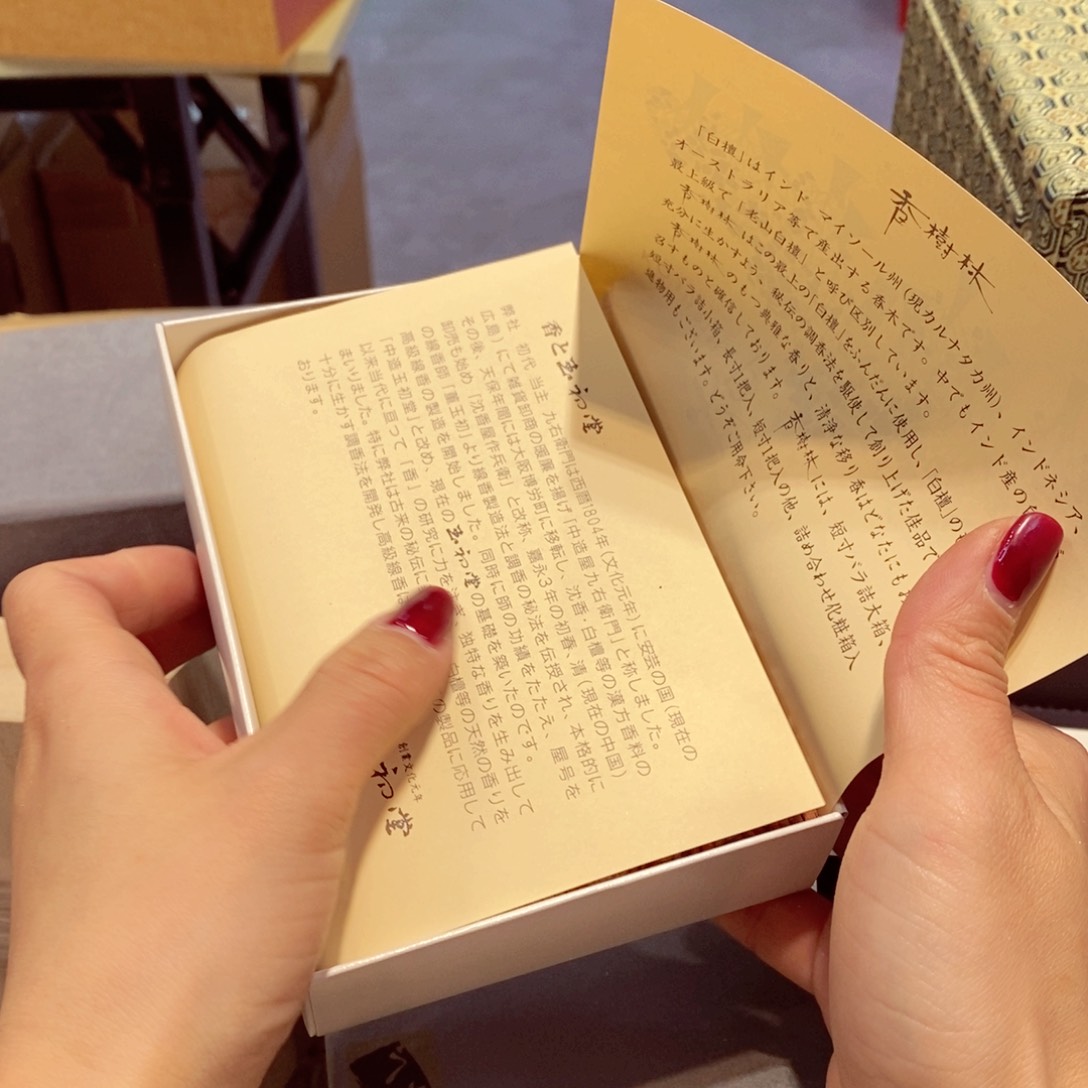 香樹林
「白檀」はインド マイソール州(現カルナタカ州)、インドネシア、
オーストラリア等で産出する香木です。中でもインド産の
最上級て「老山白檀」と呼び区別しています。
香樹林はこの最上の「白檀」をふんだんに使用し、「白檀」の
充分に生かすよう、秘伝の調香法を駆使して創り上げた佳品で
香樹林のもつ典雅な香りと、清浄な移り香はどなたにもお
召すものと確信しております。
香樹林には、短寸バラ詰大箱、
短寸バラ詰小箱、長寸1把入、短寸1把入の他、詰め合わせ化粧箱入
進物用もございます。どうぞご用命下さい。
香と玉初堂
弊社 初代 当主 九右衛門は西暦1804年(文化元年)に安芸の国(現在の
広島)にて雑貨卸商の暖簾を揚げ「中造屋九右衛門」と称しました。
その後、天保年間には大阪博労町に移転し、沈香・白檀等の漢方香料の
卸売も始め「沈香屋作兵衛」と改称、嘉永3年の初春、清(現在の中国)
の線香師「董玉初」より線香製造法と調香の秘法を伝授され、本格的に
高級線香の製造を開始しました。同時に師の功績をたたえ、屋号を
「中造玉初堂」と改め、現在の玉初堂の基礎を築いたのです。
以来当代に亘って「香」の研究に力を注ぎ、独特な香りを生み出して
まいりました。特に弊社は古来の秘伝に 白檀等の天然の香りを
十分に生かす調香法を開発し高級線香に の製品に応用して
おります。
創業文化元年
初堂